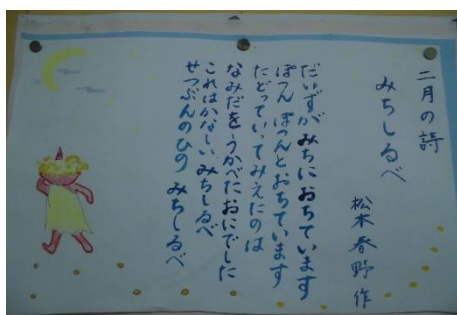 二月の詩
みちしるべ
松本春野作
だいずがみちにおちています
ぽつんぽつんとおちています
たどっていってみえたのは
なみだをうかべたおにでした
これはかなしいみちしるべ
せつぶんのひの みちしるべ